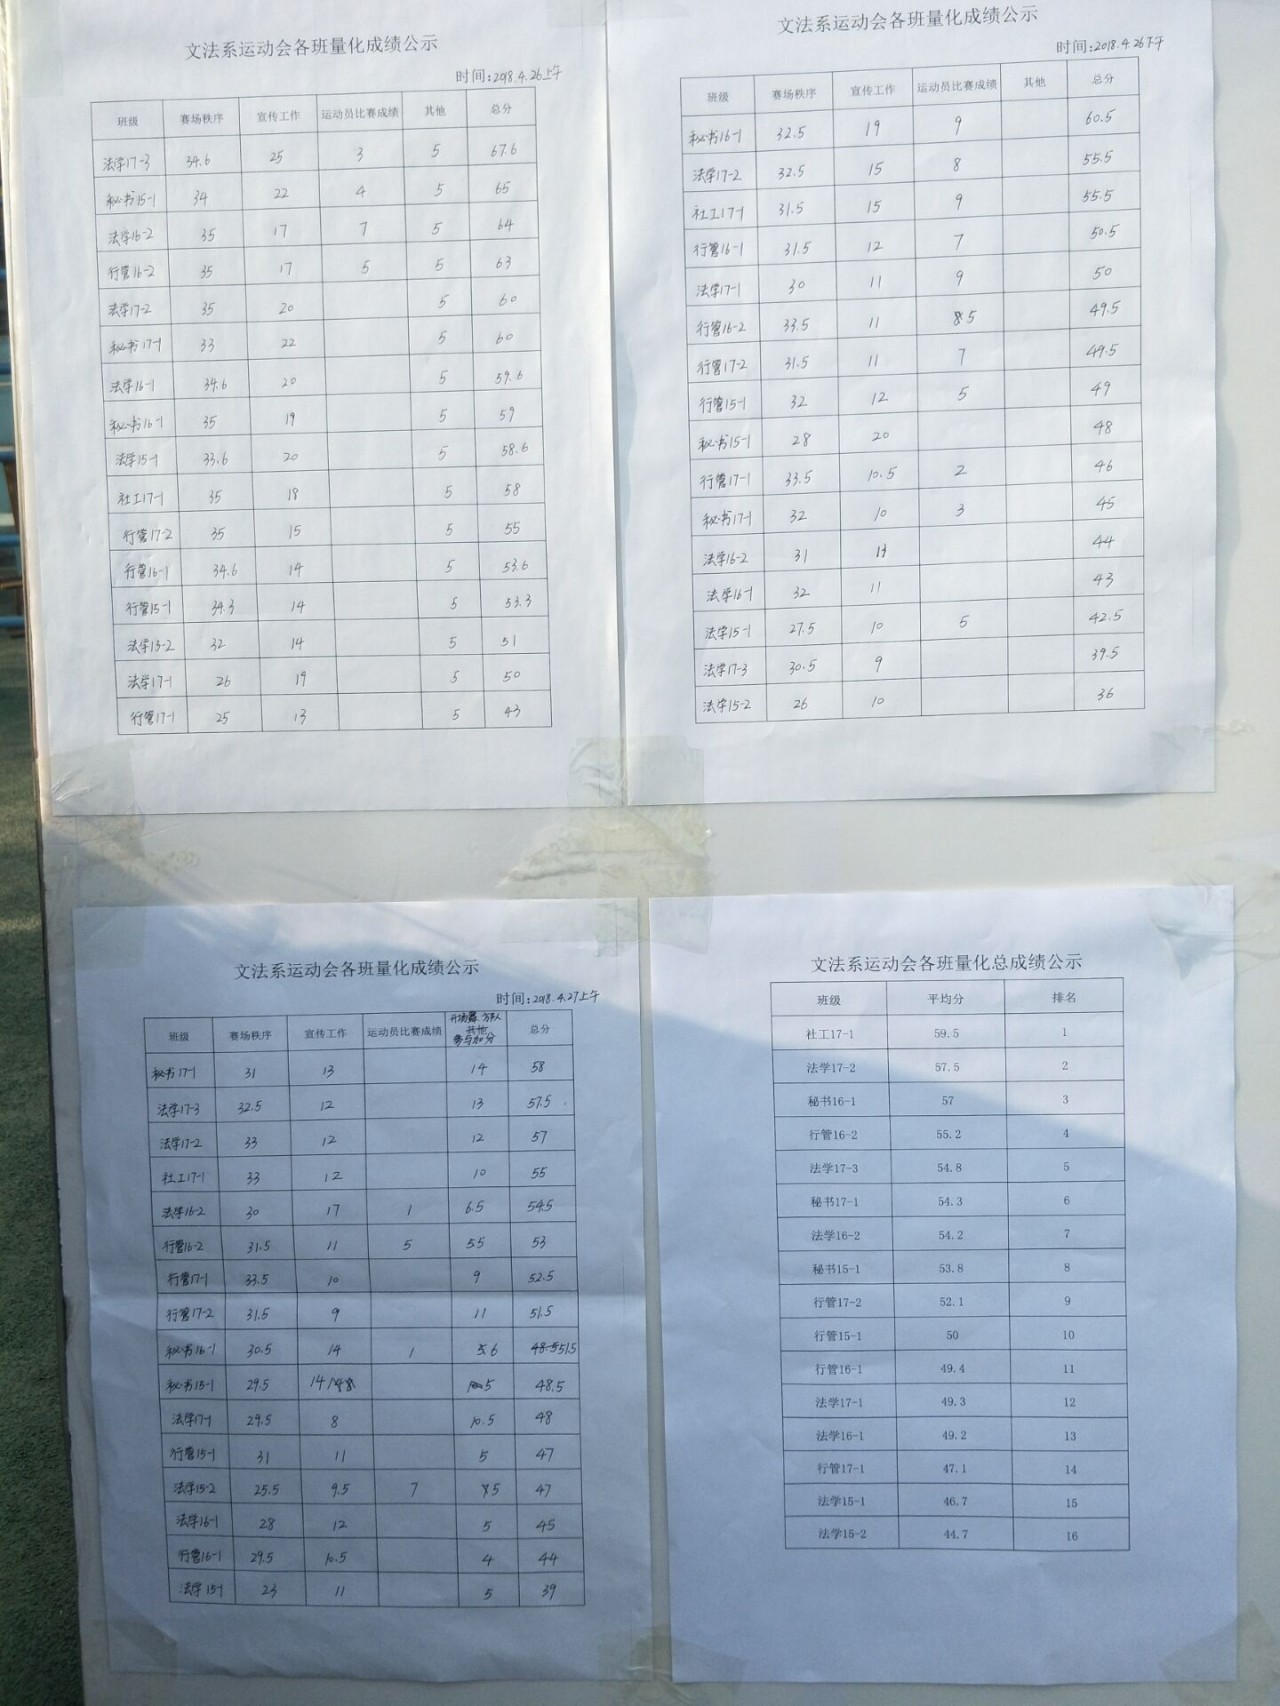 文法系运动会各班量化成绩公示
时间:2018.4.26上午
班级 赛场秩序 宣传工作 运动员比赛成绩 其他 总分
法学17-3 34.6 25 3 5 67.6
秘书15-1 34 22 4 5 65
法学16-2 35 17 7 5 64
行管16-2 35 17 5 5 63
法学17-2 35 20 5 60
秘书17-1 33 22 5 60
法学16-1 34.6 20 5 59.6
秘书16-1 35 19 5 59
法学15-1 33.6 20 5 58.6
社工17-1 35 18 5 58
行管17-2 35 15 5 55
行管16-1 34.6 14 5 53.6
行管15-1 34.3 14 5 53.3
法学15-2 32 14 5 51
法学17-1 26 19 5 50
行管17-1 25 13 5 43
文法系运动会各班量化成绩公示
时间:2018.4.26下午
班级 赛场秩序 宣传工作 运动员比赛成绩 其他 总分
秘书16-1 32.5 19 9 60.5
法学17-2 32.5 15 8 55.5
社工17-1 31.5 15 9 55.5
行管16-1 31.5 12 7 50.5
法学17-1 30 11 9 50
行管16-2 33.5 11 8.5 49.5
行管17-2 31.5 11 7 49.5
行管15-1 32 12 5 49
秘书15-1 28 20 48
行管17-1 33.5 10.5 2 46
秘书17-1 32 10 3 45
法学16-2 31 44
法学16-1 32 11 43
法学15-1 27.5 10 5 42.5
法学17-3 30.5 9 39.5
法学15-2 26 10 36
文法系运动会各班量化成绩公示
时间:2018.4.27上午
班级 赛场秩序 宣传工作 运动员比赛成绩 其他 参与加分 总分
秘书17-1 31 13 14 58
法学17-3 32.5 12 13 57.5
法学17-2 33 12 12 57
社工17-1 33 12 10 55
法学16-2 30 17 1 6.5 54.5
行管16-2 31.5 11 5 5.5 53
行管17-1 33.5 10 9 52.5
行管17-2 31.5 9 11 51.5
秘书16-1 30.5 14 1 6 51.5
秘书15-1 29.5 14 5 48.5
法学17-1 29.5 8 10.5 48
行管15-1 31 11 5 47
法学15-2 25.5 9.5 7 5 47
法学16-1 28 12 5 45
行管16-1 29.5 10.5 4 44
法学15-1 23 11 5 39
文法系运动会各班量化总成绩公示
班级 平均分 排名
社工17-1 59.5 1
法学17-2 57.5 2
秘书16-1 57 3
行管16-2 55.2 4
法学17-3 54.8 5
秘书17-1 54.3 6
法学16-2 54.2 7
秘书15-1 53.8 8
行管17-2 52.1 9
行管15-1 50 10
行管16-1 49.4 11
法学17-1 49.3 12
法学16-1 49.2 13
行管17-1 47.1 14
法学15-1 46.7 15
法学15-2 44.7 16